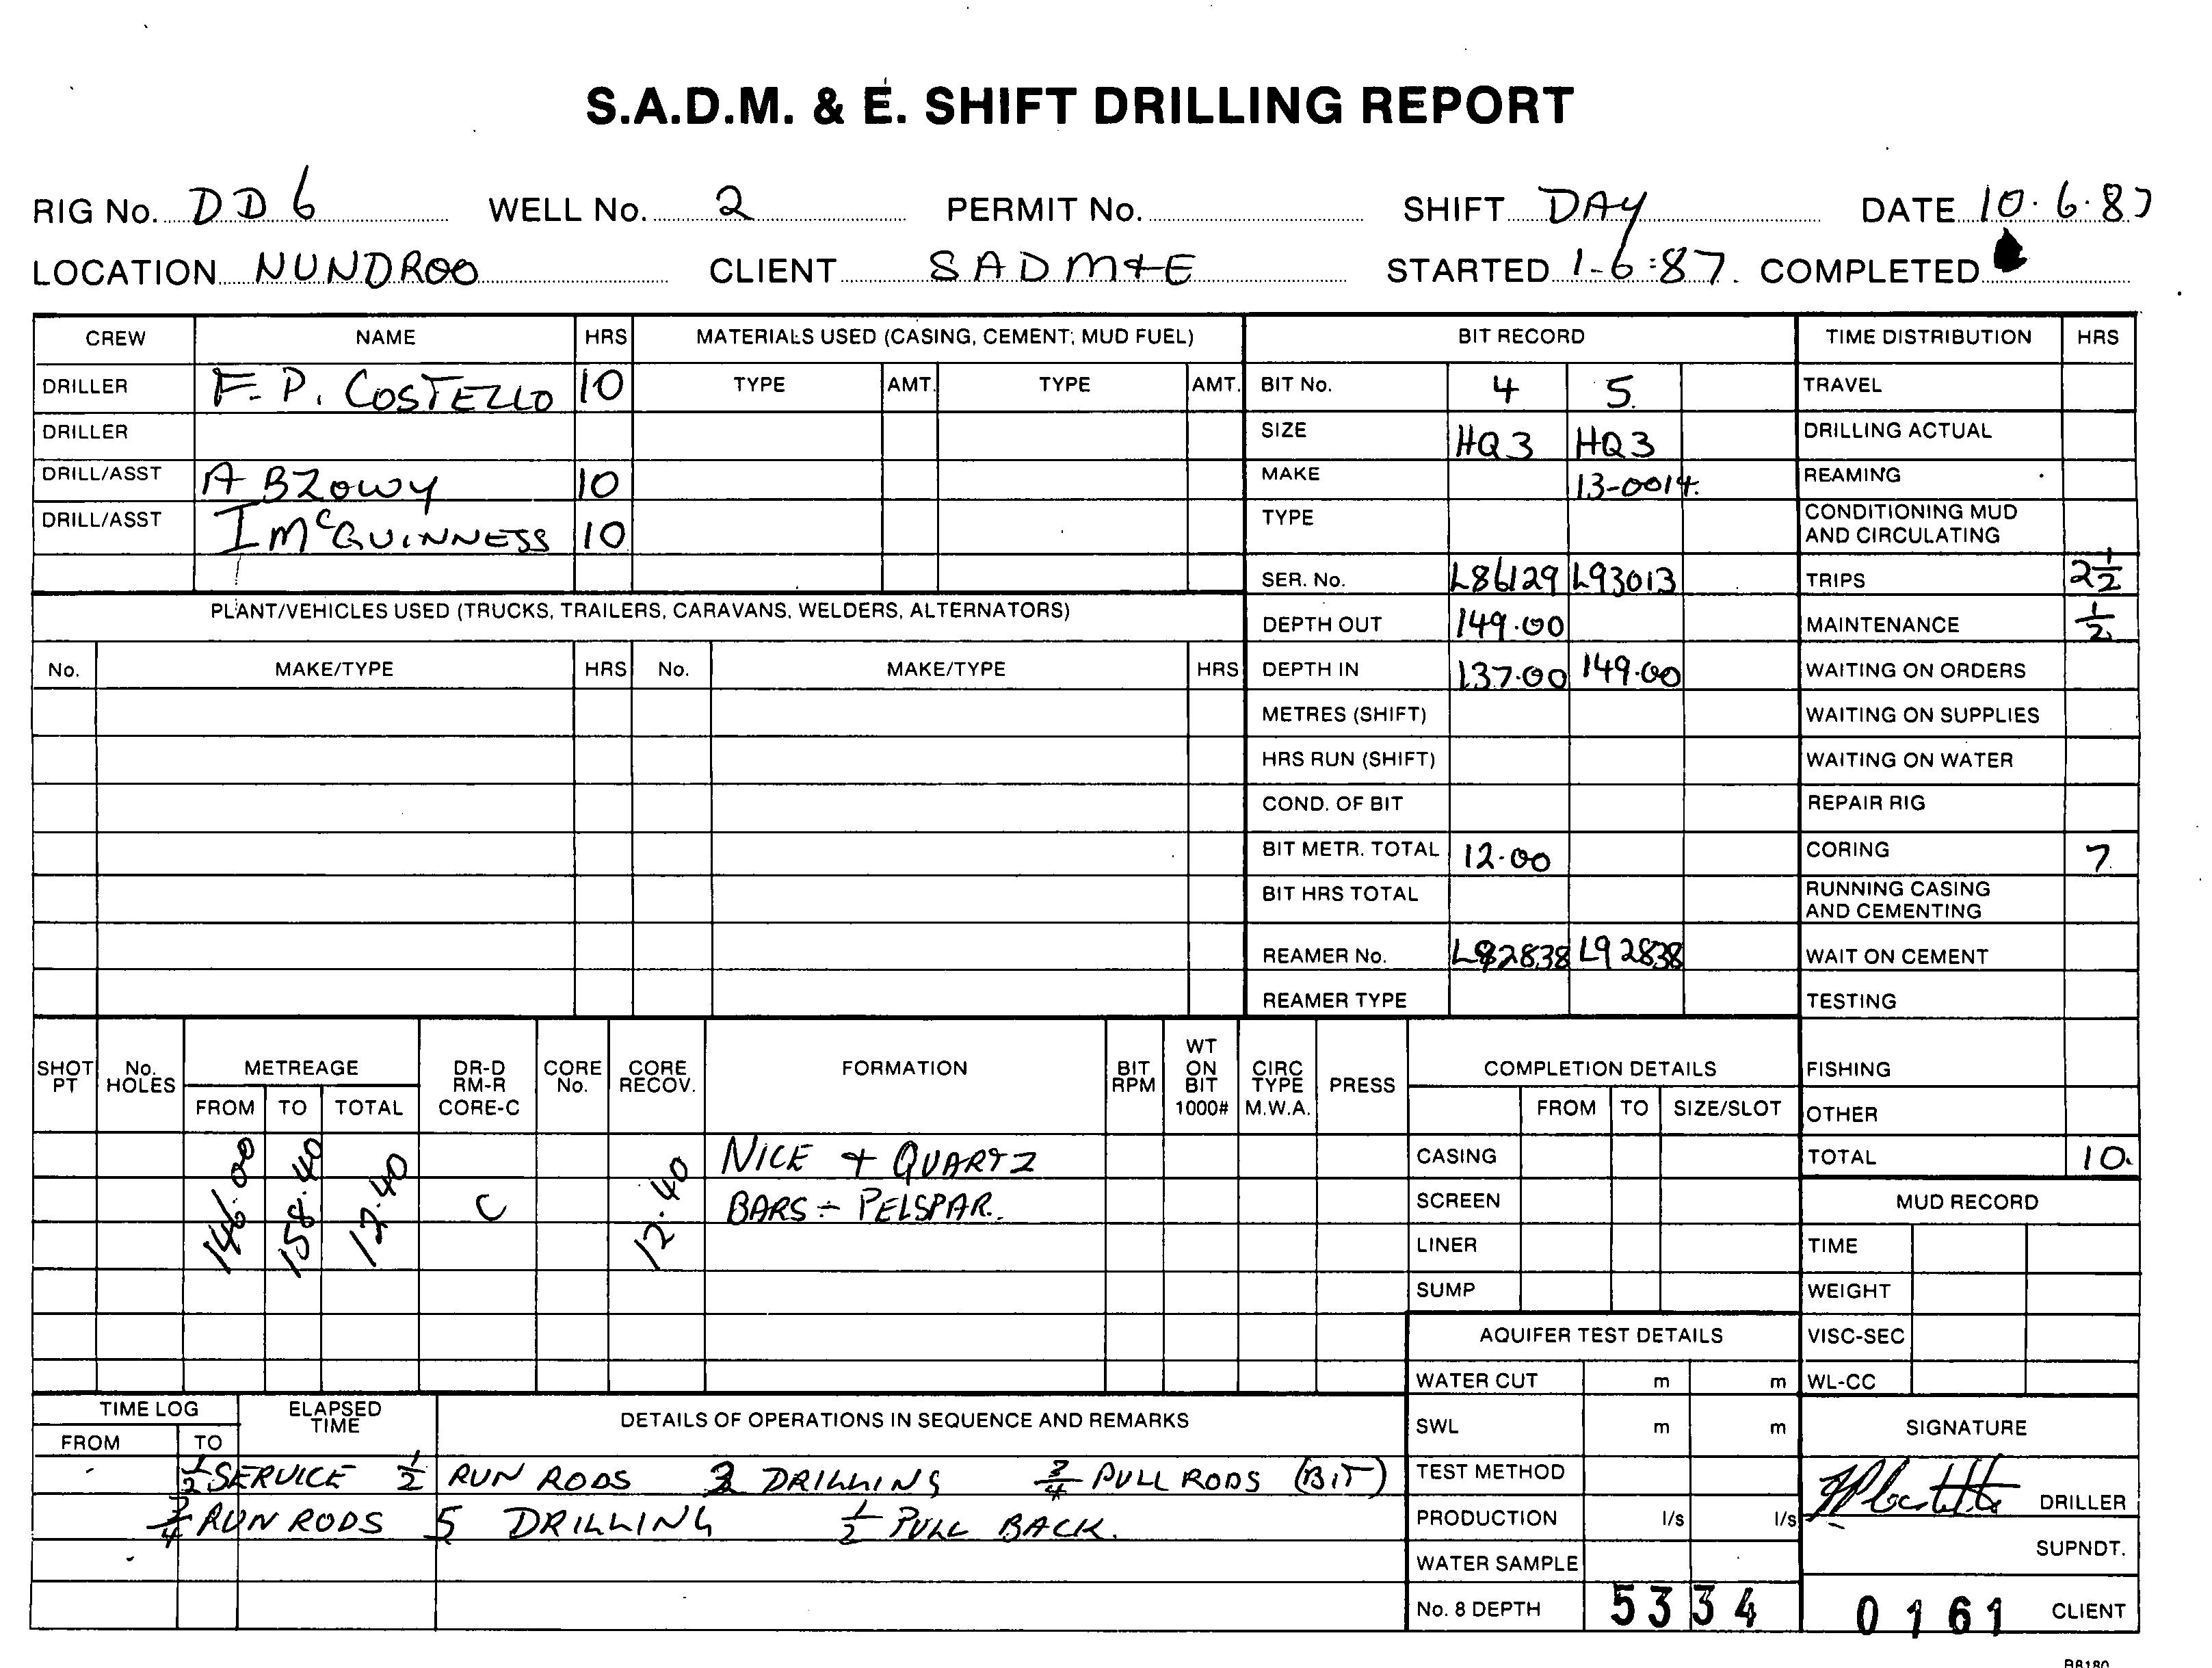 S.A.D.M. & E. SHIFT DRILLING REPORT
RIG No. DD6 WELL No. 2 PERMIT No. SHIFT DAY DATE 10.6.87
LOCATION NUNDROO CLIENT SADM+E STARTED 1-6-87. COMPLETED
CREW NAME HRS MATERIALS USED (CASING, CEMENT, MUD FUEL) BIT RECORD TIME DISTRIBUTION HRS
DRILLER F.P. COSTELLO 10 TYPE AMT. TYPE AMT. BIT No. 4 5. TRAVEL
DRILLER SIZE HQ3 HQ3 DRILLING ACTUAL
DRILL/ASST A BZOWY 10 MAKE 13-0014. REAMING
DRILL/ASST I McGUINNESS 10 TYPE CONDITIONING MUD
AND CIRCULATING
SER. No. L86129 L93013 TRIPS 2½
PLANT/VEHICLES USED (TRUCKS, TRAILERS, CARAVANS, WELDERS, ALTERNATORS) DEPTH OUT 149.00 MAINTENANCE ½
No. MAKE/TYPE HRS No. MAKE/TYPE HRS DEPTH IN 137.00 149.00 WAITING ON ORDERS
METRES (SHIFT) WAITING ON SUPPLIES
HRS RUN (SHIFT) WAITING ON WATER
COND. OF BIT REPAIR RIG
BIT METR. TOTAL 12.00 CORING 7.
BIT HRS TOTAL RUNNING CASING
AND CEMENTING
REAMER No. L92838 L92838 WAIT ON CEMENT
REAMER TYPE TESTING
SHOT PT No. HOLES METREAGE DR-D RM-R CORE-C CORE No. CORE RECOV. FORMATION BIT RPM WT ON BIT 1000# CIRC TYPE M.W.A. PRESS COMPLETION DETAILS FISHING
FROM TO TOTAL FROM TO SIZE/SLOT OTHER
146.00 158.40 12.40 C 12.40 NICE + QUARTZ CASING TOTAL 10.
BARS - PELSPAR. SCREEN MUD RECORD
LINER TIME
SUMP WEIGHT
AQUIFER TEST DETAILS VISC-SEC
WATER CUT m m WL-CC
TIME LOG ELAPSED TIME DETAILS OF OPERATIONS IN SEQUENCE AND REMARKS SWL m m SIGNATURE
FROM TO
½ SERVICE ½ RUN RODS 2 DRILLING ¾ PULL RODS (BIT) TEST METHOD
¾ RUN RODS 5 DRILLING ½ PULL BACK. PRODUCTION l/s l/s DRILLER
WATER SAMPLE SUPNDT.
No. 8 DEPTH 5334 0161 CLIENT